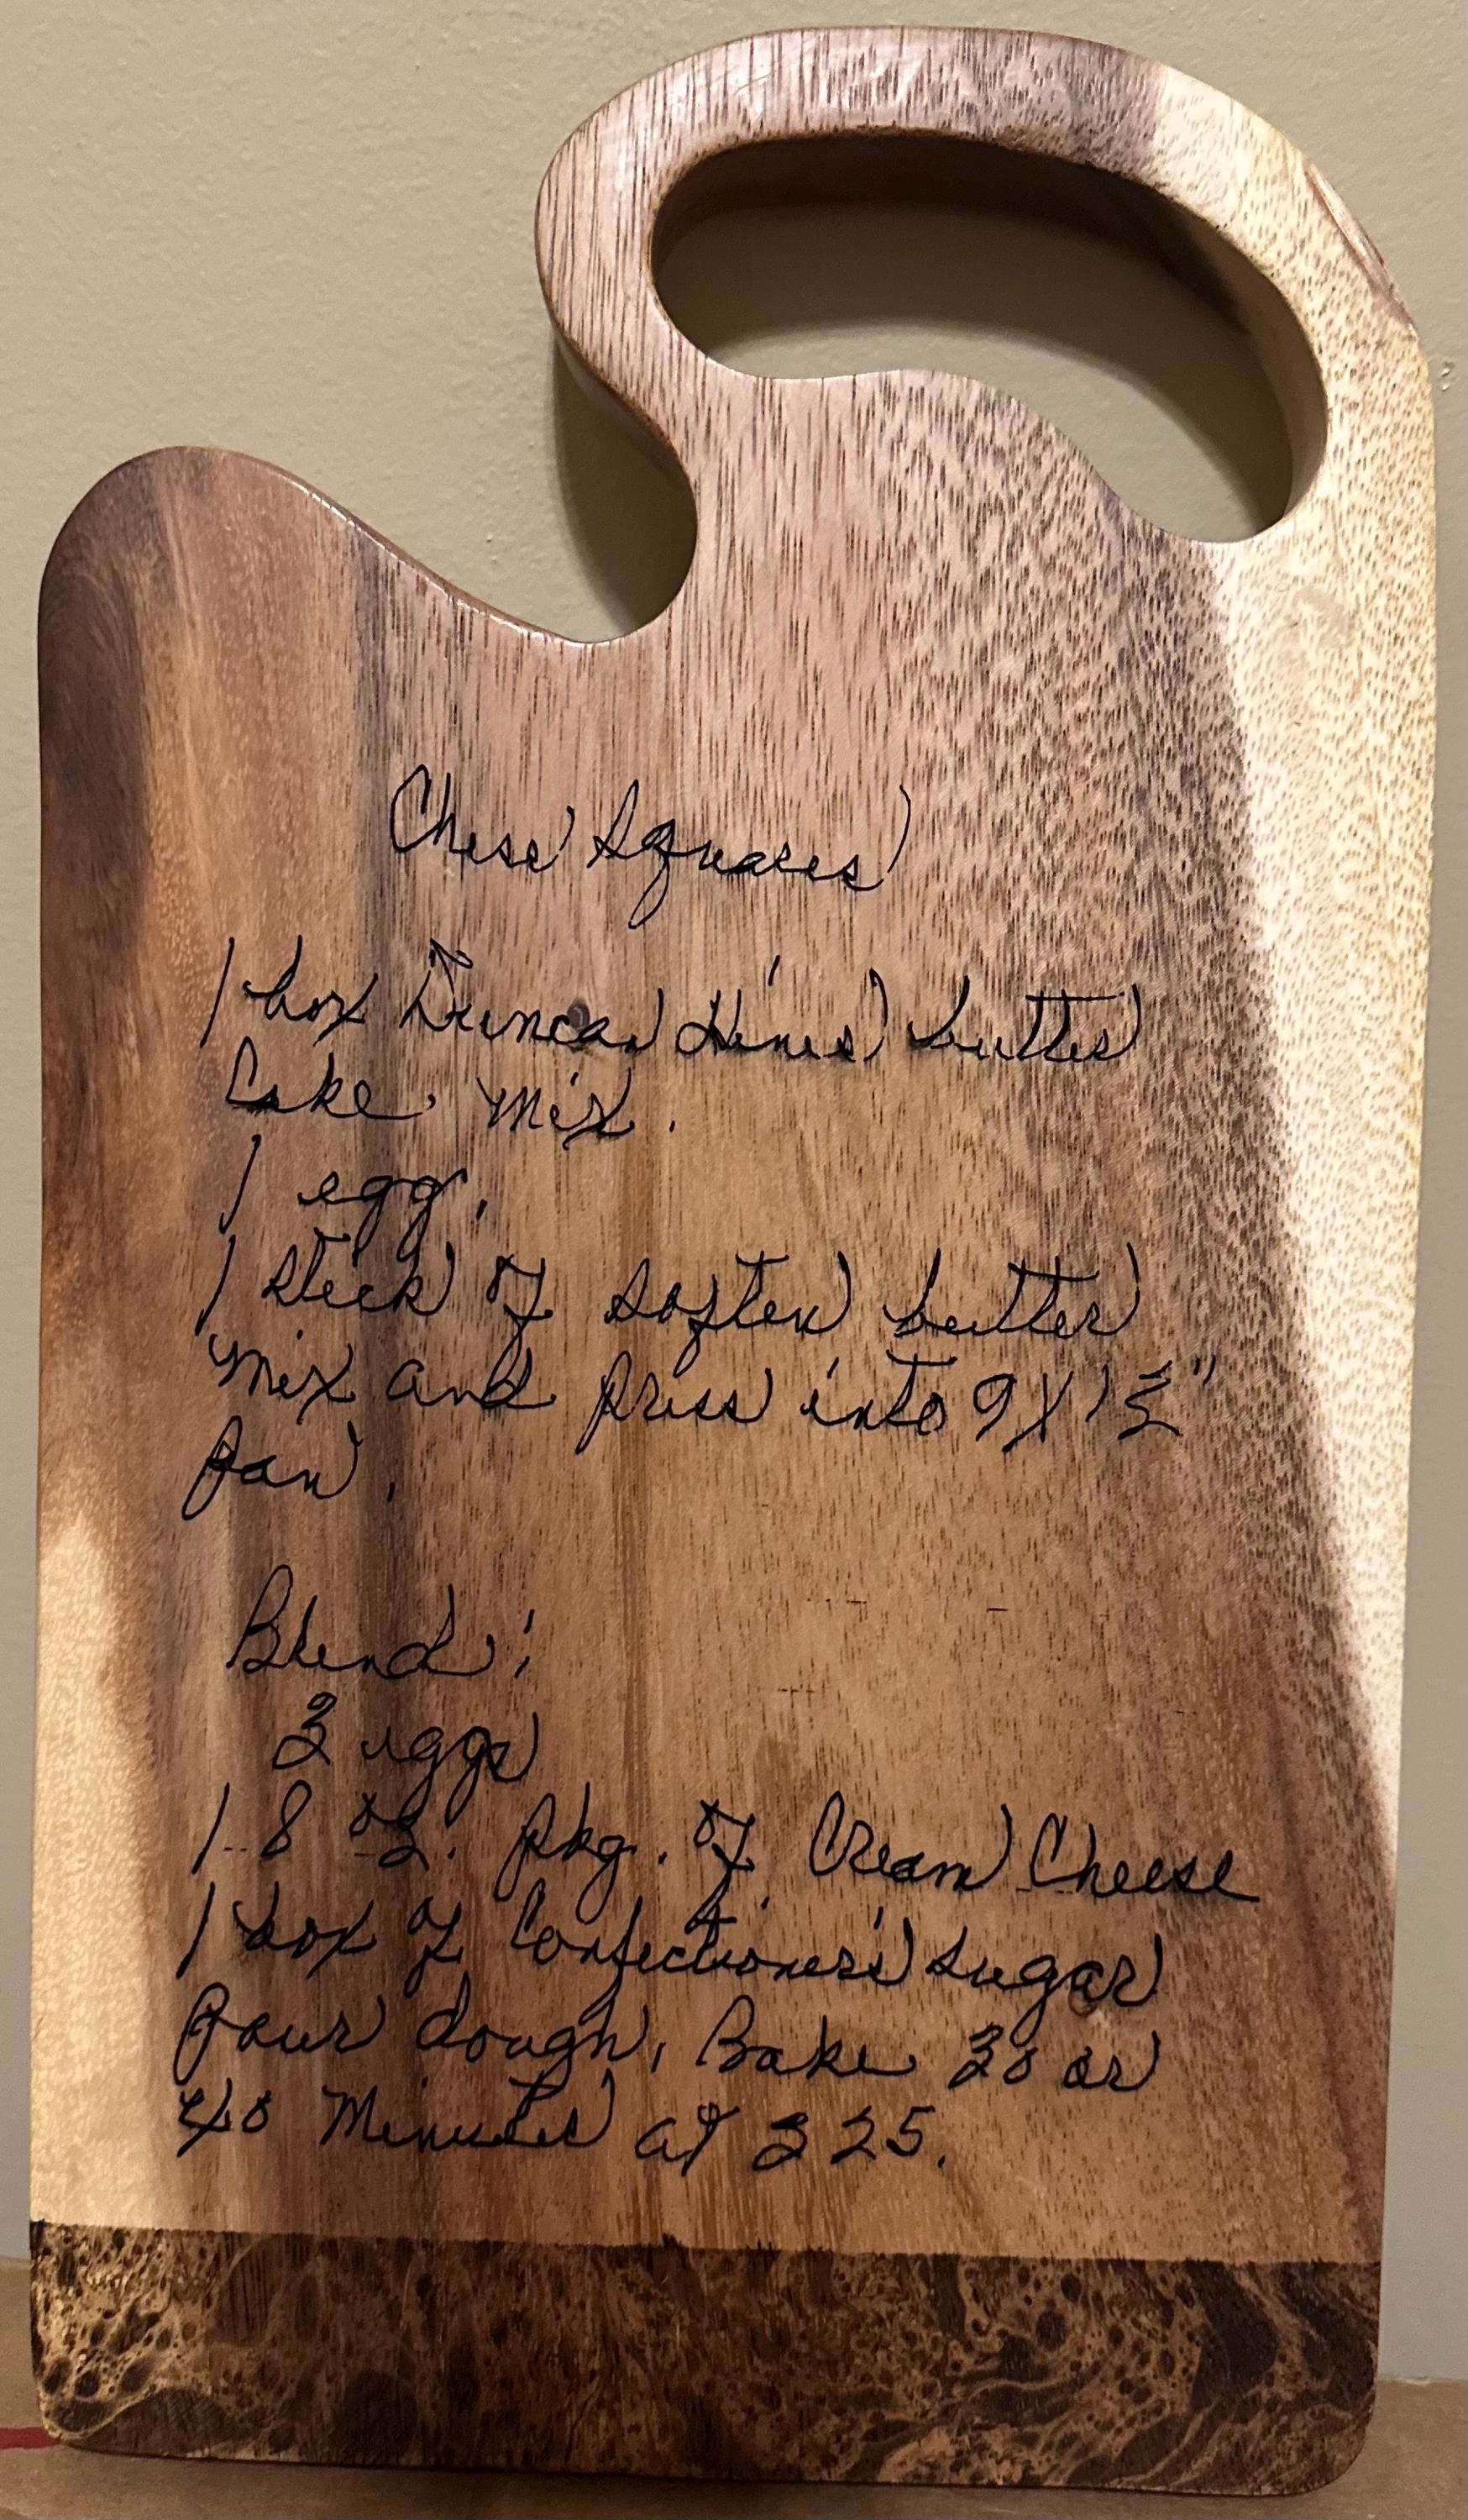 Chese Squares
1 box Duncan Hines butter
Cake mix.
1 egg.
1 stick of soften butter
mix and press into 9X13"
pan.
Blend:
3 eggs
1 8 oz. pkg. of Cream Cheese
1 box of Confectioner's sugar
Pour dough, Bake 30 or
40 Minutes at 325.